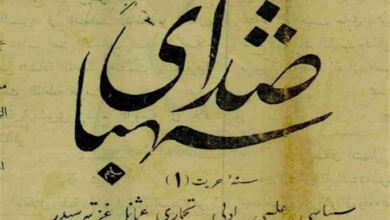 صدای
شهبا
سنهٔ حریت (۱)
سیاسی علمی ادبی تجاری عثمانلی غزته سیدر